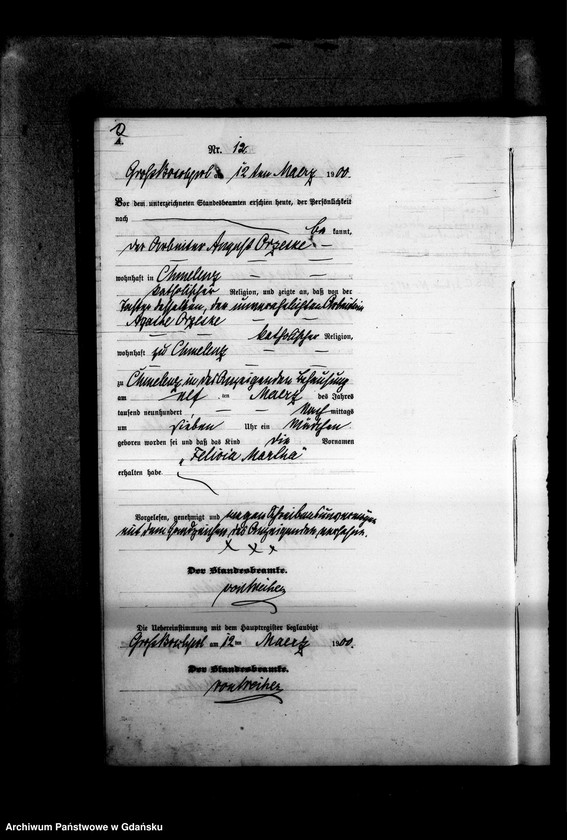 A.
Nr. 12
am 12ten Maerz 1900.
Vor dem unterzeichneten Standesbeamten erschien heute, der Persönlichkeit
nach
be kannt,
der Arbeiter August Orzeske
wohnhaft in Chmelenz
katholischer Religion, und zeigte an, daß von der
Tochter desselben, der unverehelichten Arbeiterin
Agathe Orzeske
katholischer Religion,
wohnhaft zu Chmelenz
zu Chmelenz in des Anzeigenden Behausung
am elf ten Maerz des Jahres
tausend neunhundert Nach mittags
um sieben Uhr ein Mädchen
geboren worden sei und daß das Kind die Vornamen
„Felicia Martha"
erhalten habe.
Vorgelesen, genehmigt und wegen Schreibensunvermögen
mit dem Handzeichen des Anzeigenden versehen.
x x x
Der Standesbeamte.
von Weiher
Die Uebereinstimmung mit dem Hauptregister beglaubigt
am 12ten Maerz 1900.
Der Standesbeamte.
von Weiher
Archiwum Państwowe w Gdańsku